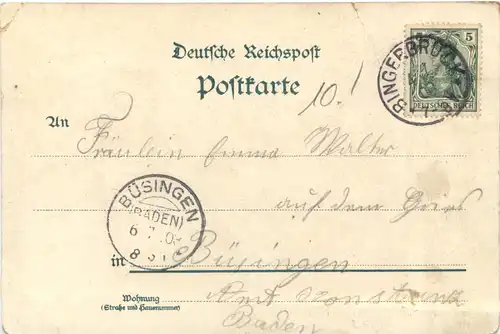 Deutsche Reichspost
Postkarte
5 5
DEUTSCHES REICH
BINGERBRÜCK
10!
An
Fräulein Emma Walter
auf dem Gries
BÜSINGEN
(BADEN)
in Büsingen
Amt Konstanz
Wohnung
(Straße und Hausnummer)
Baden